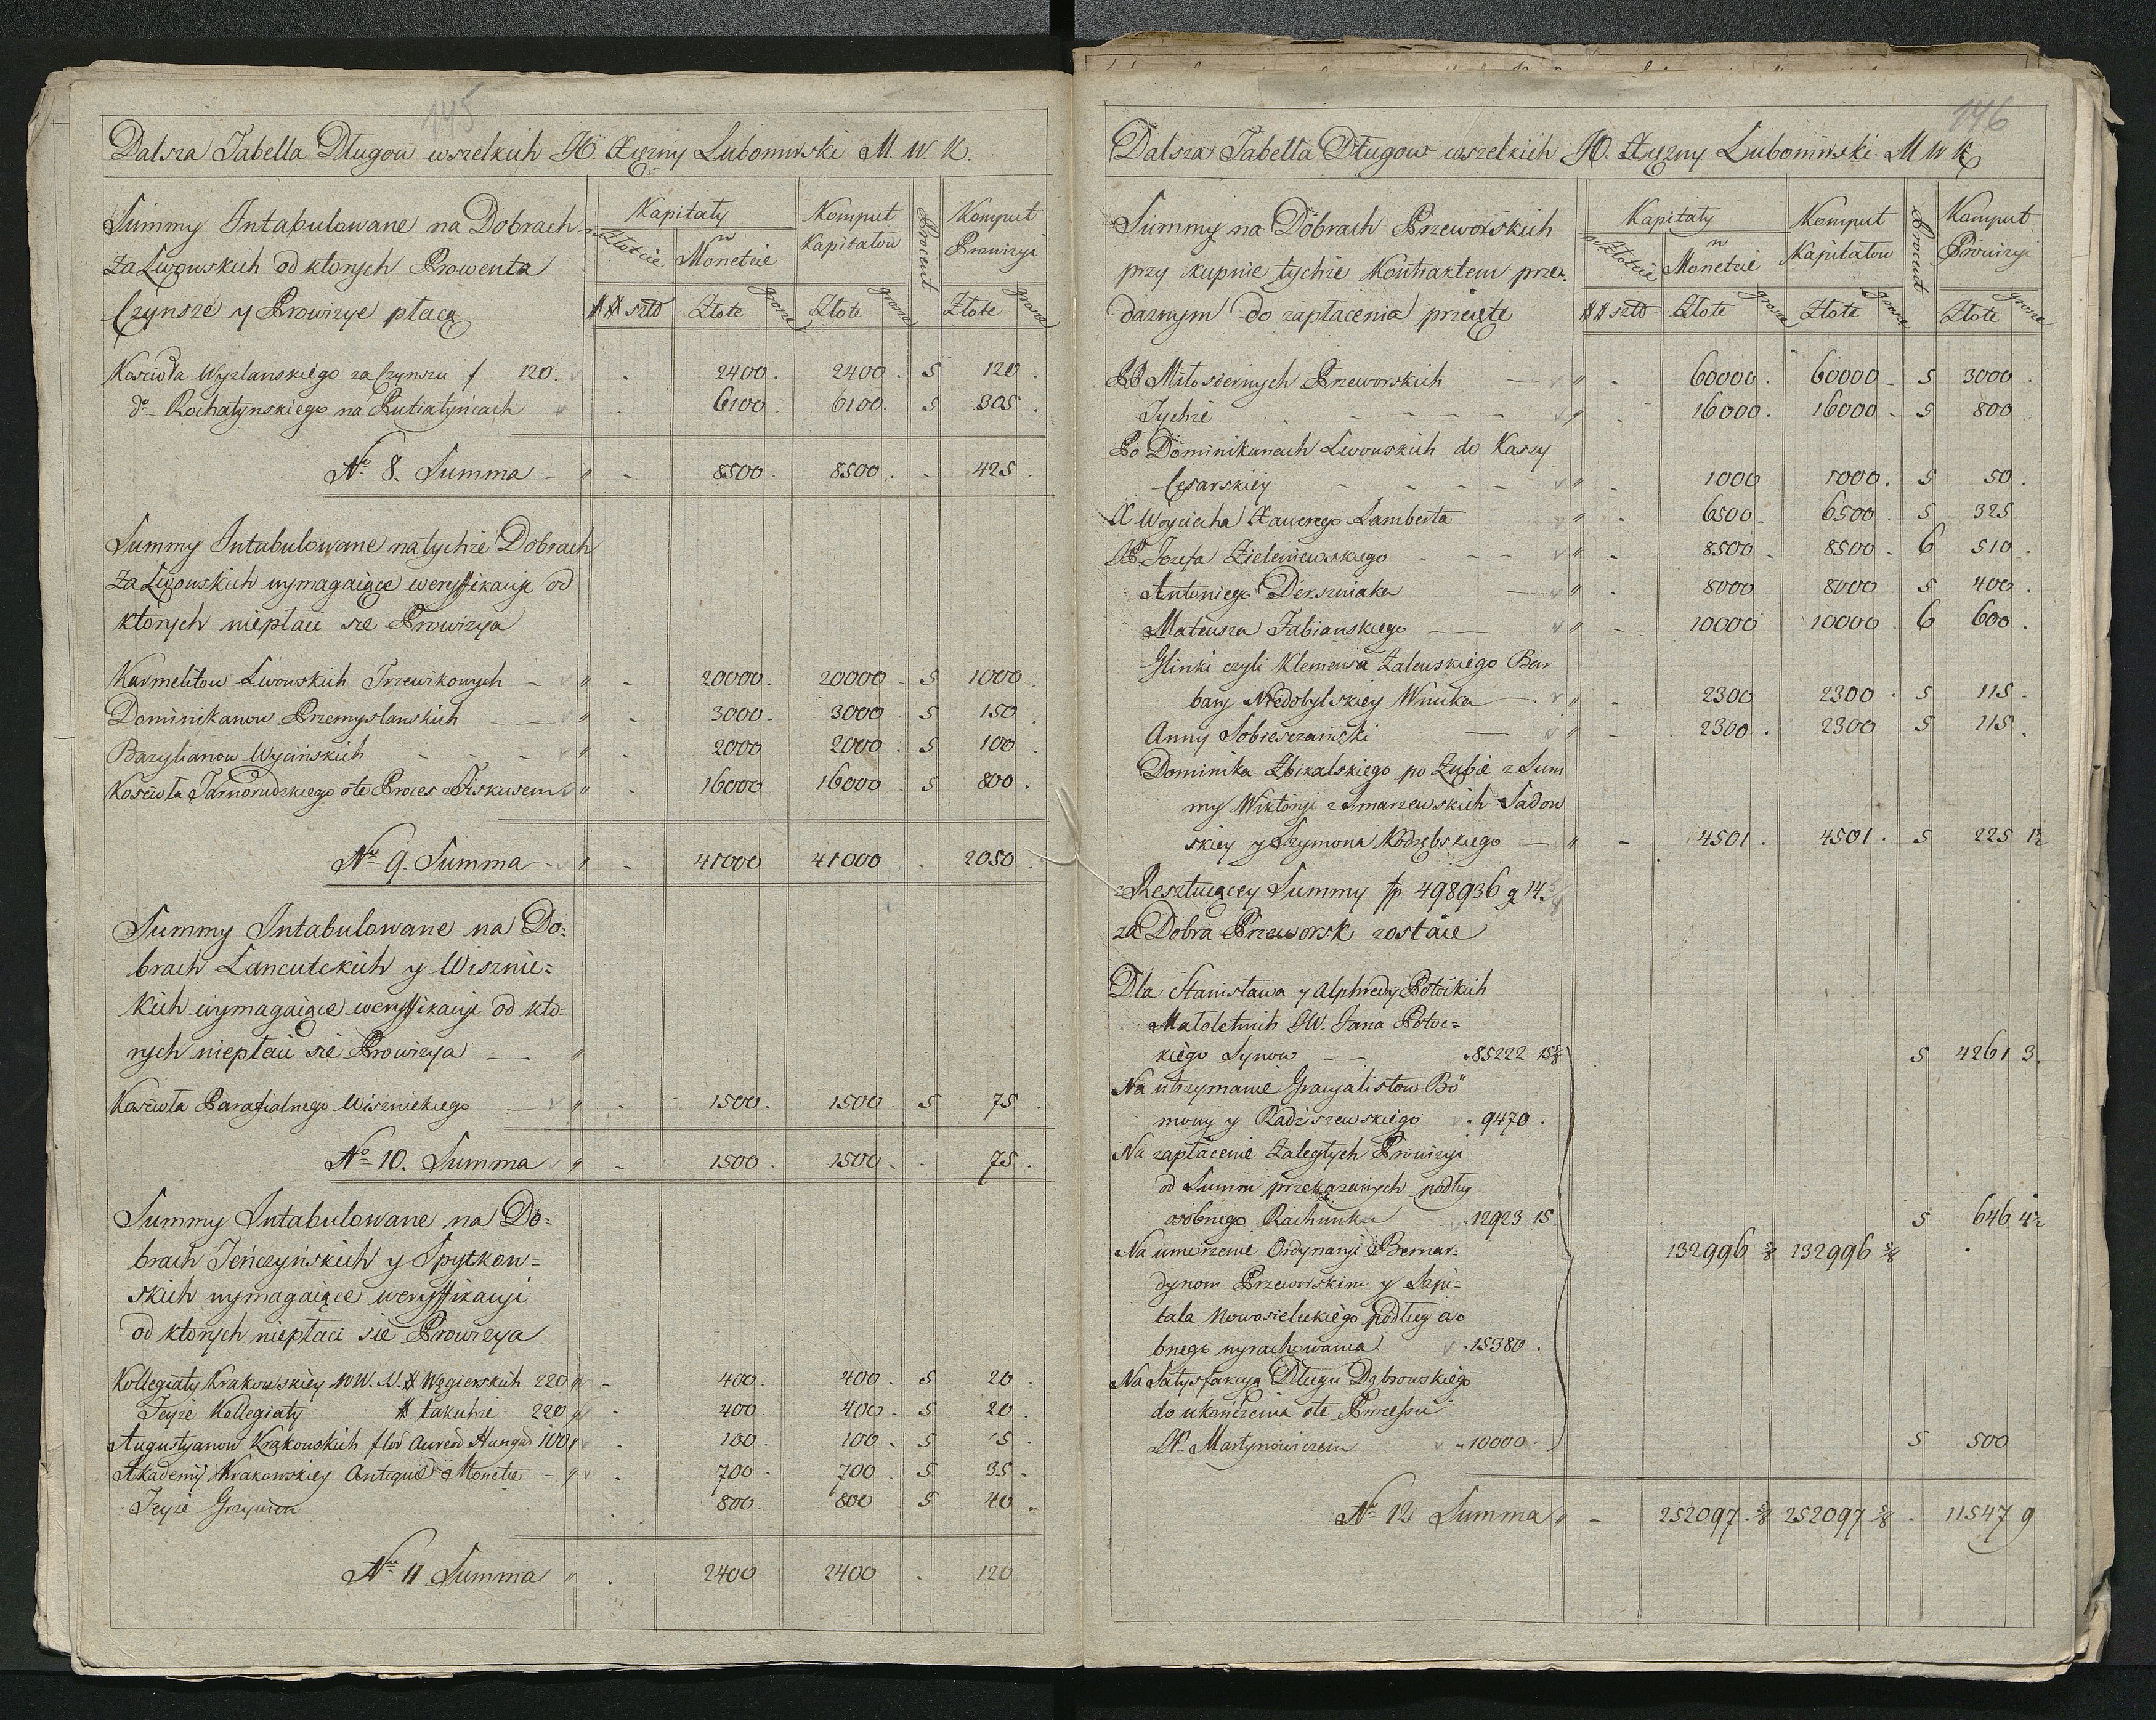 145
Dalsza Tabella Długow wszelkich JO. Xiężny Lubomirski M. W. K.
Summy Intabulowane na Dobrach
za Lwowskich od ktorych Prowenta
Czynsze y Prowizye płacą
Kapitały
w Złocie
w Monecie
Komput
Kapitałow
Procent
Komput
Prowizyi
## sztd
Złote
grosze
Złote
grosze
Złote
grosze
Koscioła Wyzlanskiego za Czynszu f 120. 2400. 2400. 5 120.
do Rochatynskiego na Putiatyńcach 6100 6100. 5 305.
No 8. Summa 8500. 8500. - 425.
Summy Intabulowane na tychże Dobrach
za Lwowskich wymagaiące weryffikacyi od
ktorych niepłaci się Prowizya
Karmelitow Lwowskich Trzewikowych 20000. 20000 5 1000
Dominikanow Przemyslanskich 3000. 3000. 5 150.
Bazylianow Wycińskich 2000 2000. 5 100.
Koscioła Tarnorudzkiego ote Proces z Fiskusem 16000 16000. 5 800.
No 9. Summa 41000 41000 . 2050.
Summy Intabulowane na Do=
brach Łancutckich y Wisznic=
kich wymagaiące weryffikacyi od kto=
rych niepłaci się Prowizya
Koscioła Parafialnego Wisznickiego 1500. 1500. 5 75.
No 10. Summa 1500. 1500. - 75.
Summy Intabulowane na Do=
brach Tenczyńskich y Spytkow=
skich wymagaiące weryffikacyi
od ktorych niepłaci się Prowizya
Kollegiaty Krakowskiey WW. SS. # Węgierskich 220 400. 400. 5 20.
Teyże Kollegiaty # takuhże 220 400. 400. 5 20.
Augustyanow Krakowskich flor Aureor Hungar 100 100. 100. 5 5.
Akademij Krakowskiey Antique Monetæ 700. 700. 5 35.
Teyże Grzywien 800. 800 5 40.
No 11 Summa 2400 2400 . 120
146
Dalsza Tabella Długow wszelkich JO. Xiężny Lubomirski M W K
Summy na Dobrach Przeworskich
przy kupnie tychże Kontraktem prze=
daznym do zapłacenia przięte
Kapitały
w Złocie
w Monecie
Komput
Kapitałow
Procent
Komput
Prowizyi
## sztd
Złote
grosze
Złote
grosze
Złote
grosze
PP Miłosiernych Przeworskich 60000. 60000 5 3000.
Tychże 16000. 16000 5 800
Po Dominikanach Lwowskich do Kassy
Cesarskiey 1000 1000. 5 50.
X Woyciecha Xawerego Lamberta 6500. 6500 5 325
Józefa Zieleniewskiego 8500. 8500. 6 510.
Antoniego Derszniaka 8000 8000 5 400.
Mateusza Fabianskiego 10000 10000. 6 600.
Glinki czyli Klemensa Zalewskiego Bar
bary Niedobylskiey Wnuka 2300 2300. 5 115.
Anny Sobieszczanski 2300. 2300 5 115.
Dominika Zbikalskiego po Zubie z Sum
my Wiktoryi z Smarzewskich Sadow
skiey y Szymona Kodrębskiego 4501. 4501. 5 225 1½
z Resztuiącey Summy fp 498936 g 14
za Dobra Przeworsk zostaie
Dla Stanisława y Alphredy Potockich
Małoletnich JW. Jana Potoc=
kiego Synow 85222 15 5/8 5 4261 3.
Na utrzymanie Gracyalistow Bö
mony y Radziszewskiego 9470.
Na zapłacenie Zaległych Prowizyi
od Summ przekazanych podług
osobnego Rachunku 12923 15. 5 646 4½
Na umorzenie Ordynaryi Bernar= 132996 5/8 132996 5/8
dynom Przeworskim y Szpi=
tala Nowosieleckiego podług oso
bnego wyrachowania 15380.
Na Satysfakcyą Długu Dąbrowskiego
do ukończenia ote Processu
JP. Martynowiczem 10000. 5 500
No 12 Summa 252097 5/8 252097 5/8 . 11547 9